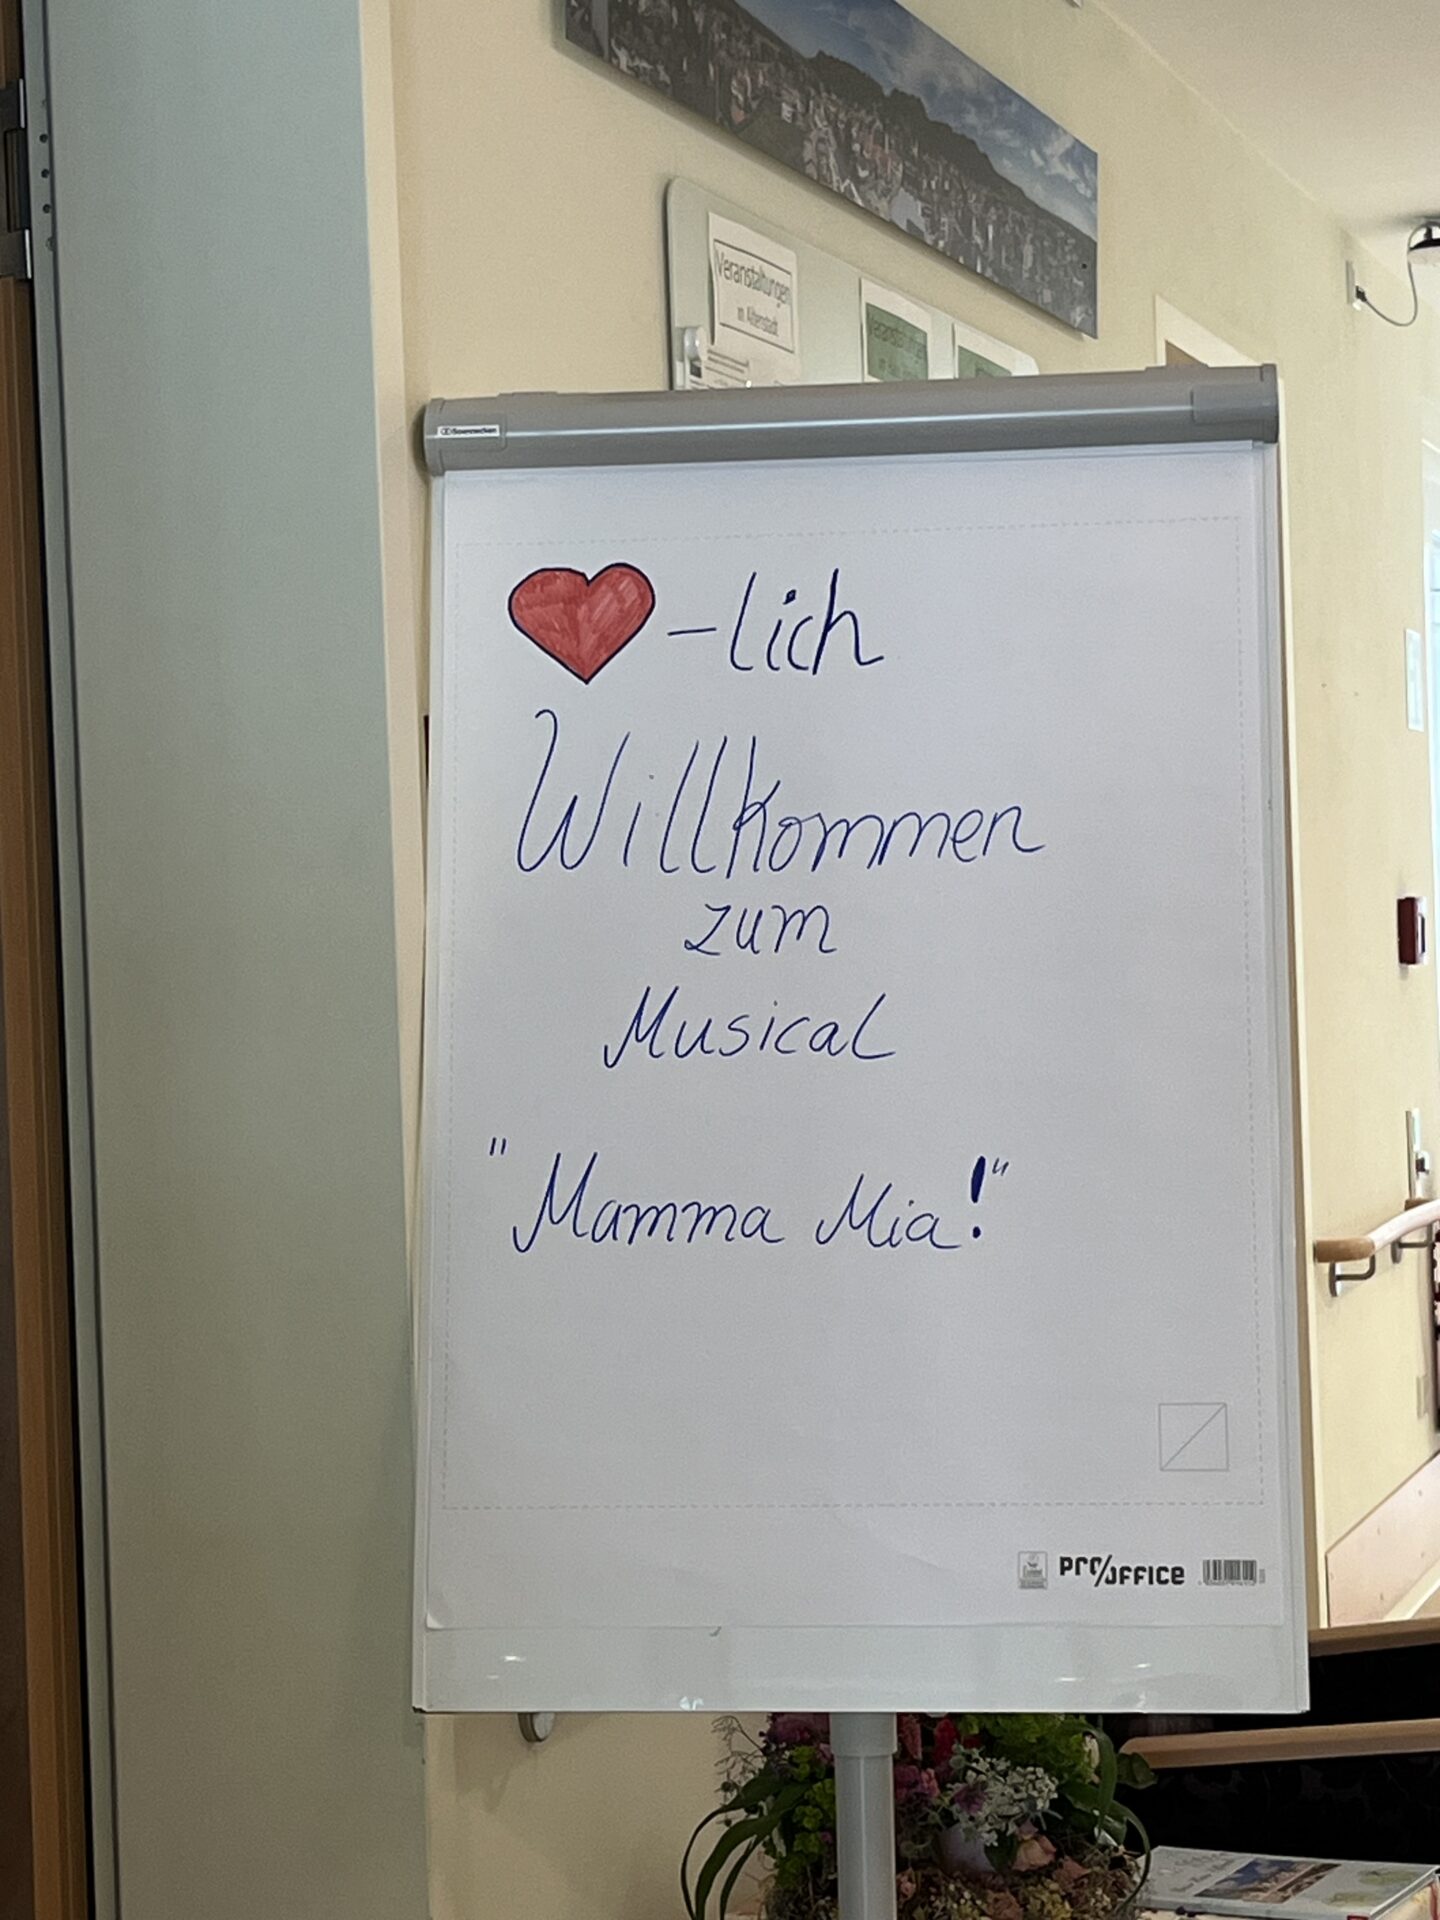 Veranstaltungen
im Altenstadt
Veranstaltungen
Soennecken
-lich
Willkommen
zum
Musical
"Mamma Mia!"
PRO/OFFICE